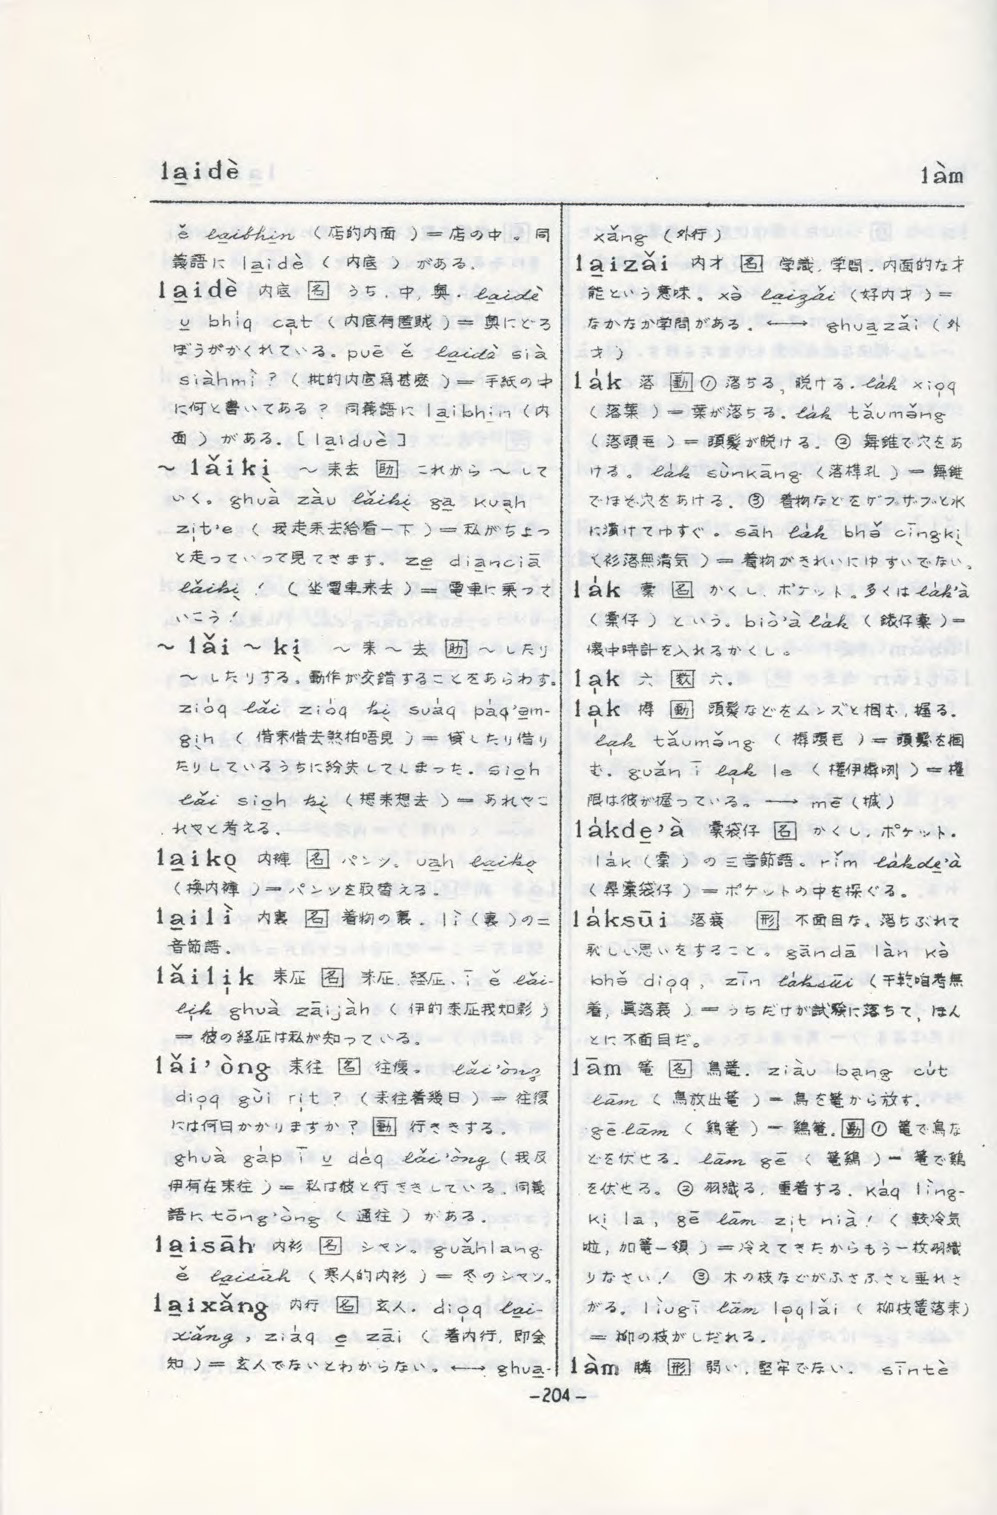 la̲idè
làm
ě la̲ibhin (店的内面)＝店の中。同
義語に la̲idè (内底) がある.
la̲idè 内底 [名] うち,中,奥. la̲idè
u̲ bhiq ca̍t (内底有匿賊)＝奥にどろ
ぼうがかくれている。puē ě la̲idè sià
siàhmi̍? (批的内底寫甚麼)＝手紙の中
に何と書いてある? 同義語に la̲ibhi̲n (内
面) がある.[la̲iduè]
～lǎiki̖ ～来去 [助] これから～して
いく。ghuà zàu lǎiki̖ ga̲ kuah
zi̍t'e (我走来去給看一下)＝私がちょっ
と走っていって見てきます. ze̲ diǎnciā
lǎiki̖! (坐電車来去)＝電車に乗って
いこう!
～lǎi～ki̖ ～来～去 [助] ～したり
～したりする。動作が交錯することをあらわす。
zióq lǎi zióq ki̖ suáq pàq'em-
gi̖h (借来借去煞怕唔見)＝貸したり借り
たりしているうちに紛失してしまった. sio̲h
lǎi sio̲h ki̖ (想来想去)＝あれやこ
れやと考える.
la̲iko̖ 内褲 [名] パンツ。uah la̲iko̖
(換内褲)＝パンツを取替える.
la̲ilì 内裏 [名] 着物の裏. lì(裏)の二
音節語.
lǎili̍k 来历 [名] 来历,経历. ī ě lǎi-
li̍k ghuà zāijàh (伊的来历我知影)
＝彼の経历は私が知っている.
lǎi'òng 来往 [名] 往復. lǎi'òng
dio̍q gùi ri̍t? (来往着幾日)＝往復
には何日かかりますか? [動] 行ききする.
ghuà gáp ī u̲ déq lǎi'òng (我及
伊有在来往)＝私は彼と行ききしている.同義
語に tōng'òng (通往) がある.
la̲isāh 内衫 [名] シャツ。guǎhlang
ě la̲isāh (寒人的内衫)＝冬のシャツ.
la̲ixǎng 内行 [名] 玄人. dio̍q la̲i-
xǎng, ziáq e̲ zāi (着内行,即会
知)＝玄人でないとわからない.←→ ghua̲-
xǎng (外行)
la̲izǎi 内才 [名] 学識,学問.内面的な才
能という意味。xò la̲izǎi (好内才)＝
なかなか学問がある. ←→ ghua̲zǎi (外
才)
lák 落 [動] ①落ちる,脱ける. lák xio̍q
(落葉)＝葉が落ちる. lák tǎumǒng
(落頭毛)＝頭髪が脱ける. ②舞錐で穴をあ
ける。lák sùnkāng (落榫孔)＝舞錐
でほぞ穴をあける. ③着物などをザブザブと水
に漬けてゆすぐ。sāh lák bhǒ cīngki̖
(衫落無清気)＝着物がきれいにゆすいでない。
lák 橐 [名] かくし,ポケット。多くは lák'à
(橐仔) という。biò'à lák (錶仔橐)＝
懐中時計を入れるかくし。
la̍k 六 [数] 六.
la̍k [動] 頭髪などをムンズと掴む,握る.
la̍k tǎumǒng (頭毛)＝頭髪を掴
む. guǎn ī la̍k le (権伊咧)＝権
限は彼が握っている. →mē(搣)
lákde̲'à 橐袋仔 [名] かくし,ポケット.
lák(橐)の三音節語。rǐm lákde̲'à
(橐袋仔)＝ポケットの中を探ぐる。
láksūi 落衰 [形] 不面目な、落ちぶれて
恥しい思いをすること。gāndā làn kǒ
bhǒ dio̍q, zīn láksūi (干乾咱考無
着,真落衰)＝うちだけが試験に落ちて,ほん
とに不面目だ。
lām 篭 [名] 鳥篭. ziàu ba̖ng cu̍t
lām (鳥放出篭)＝鳥を篭から放す.
gē-lām (鶏篭)＝鶏篭. [動] ①篭で鳥な
どを伏せる. lām gē (篭鶏)＝篭で鶏
を伏せる。②羽織る,重着する. káq lǐng-
ki̖ la, gē lām zi̍t nià! (較冷気
啦,加篭一領)＝冷えてきたからもう一枚羽織
りなさい! ③木の枝などがふさふさと垂れさ
がる。liùgī lām lo̍qlǎi (柳枝篭落来)
＝柳の枝がしだれる.
làm [形] 弱い,堅牢でない. sīntè
－204－